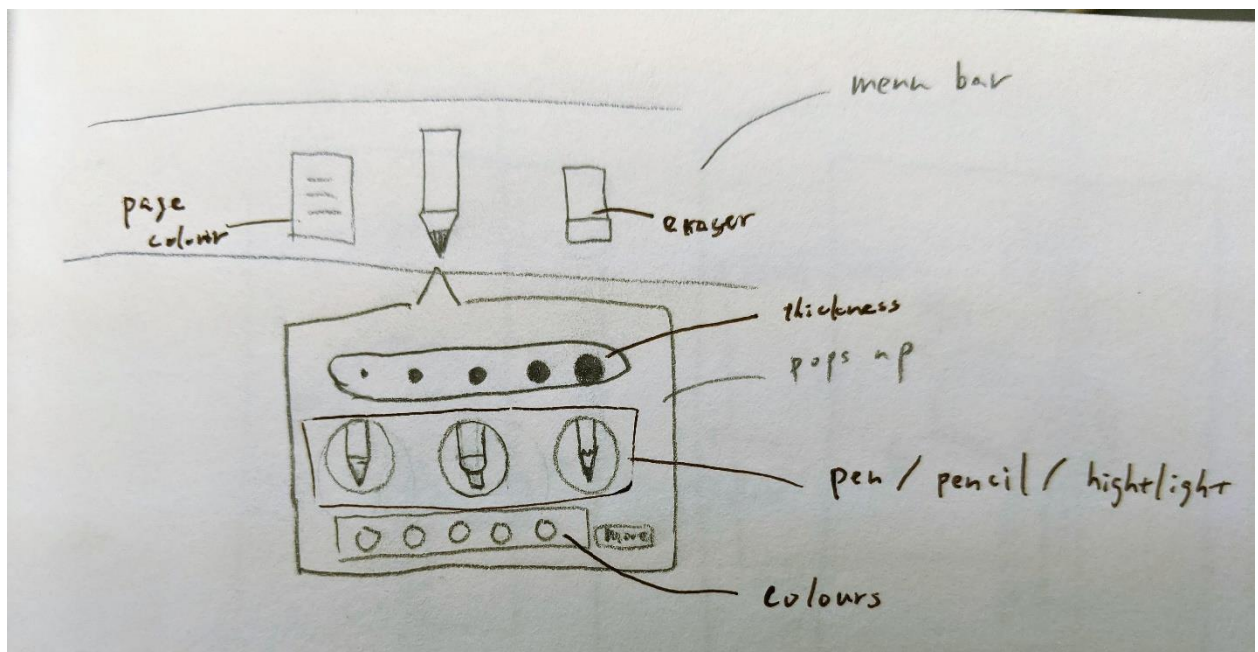 menu bar
page
colour
eraser
thickness
pops up
pen / pencil / hightlight
More
colours